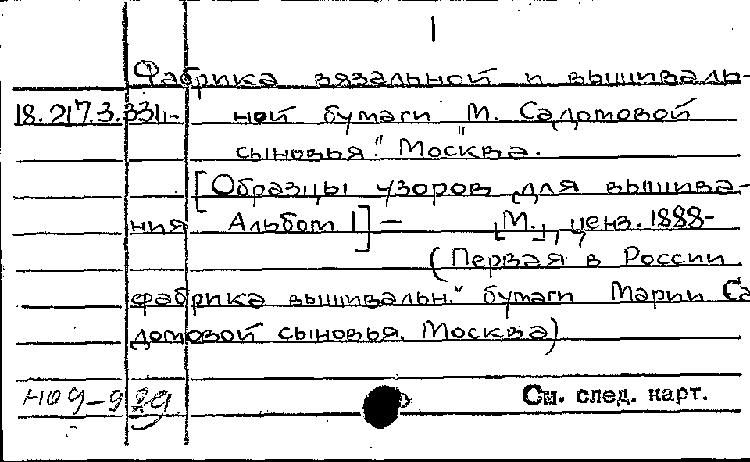 1
Фабрика вязальной и вышиваль-
18.217.3.331,- ной бумаги М. Садомовой
сыновья." Москва.
[Образцы узоров для вышива-
ния Альбом 1] — [М.], ценз. 1888-
(Первая в России
фабрика вышивальн." бумаги Марии Са
домовой сыновья. Москва)
См. след. карт.